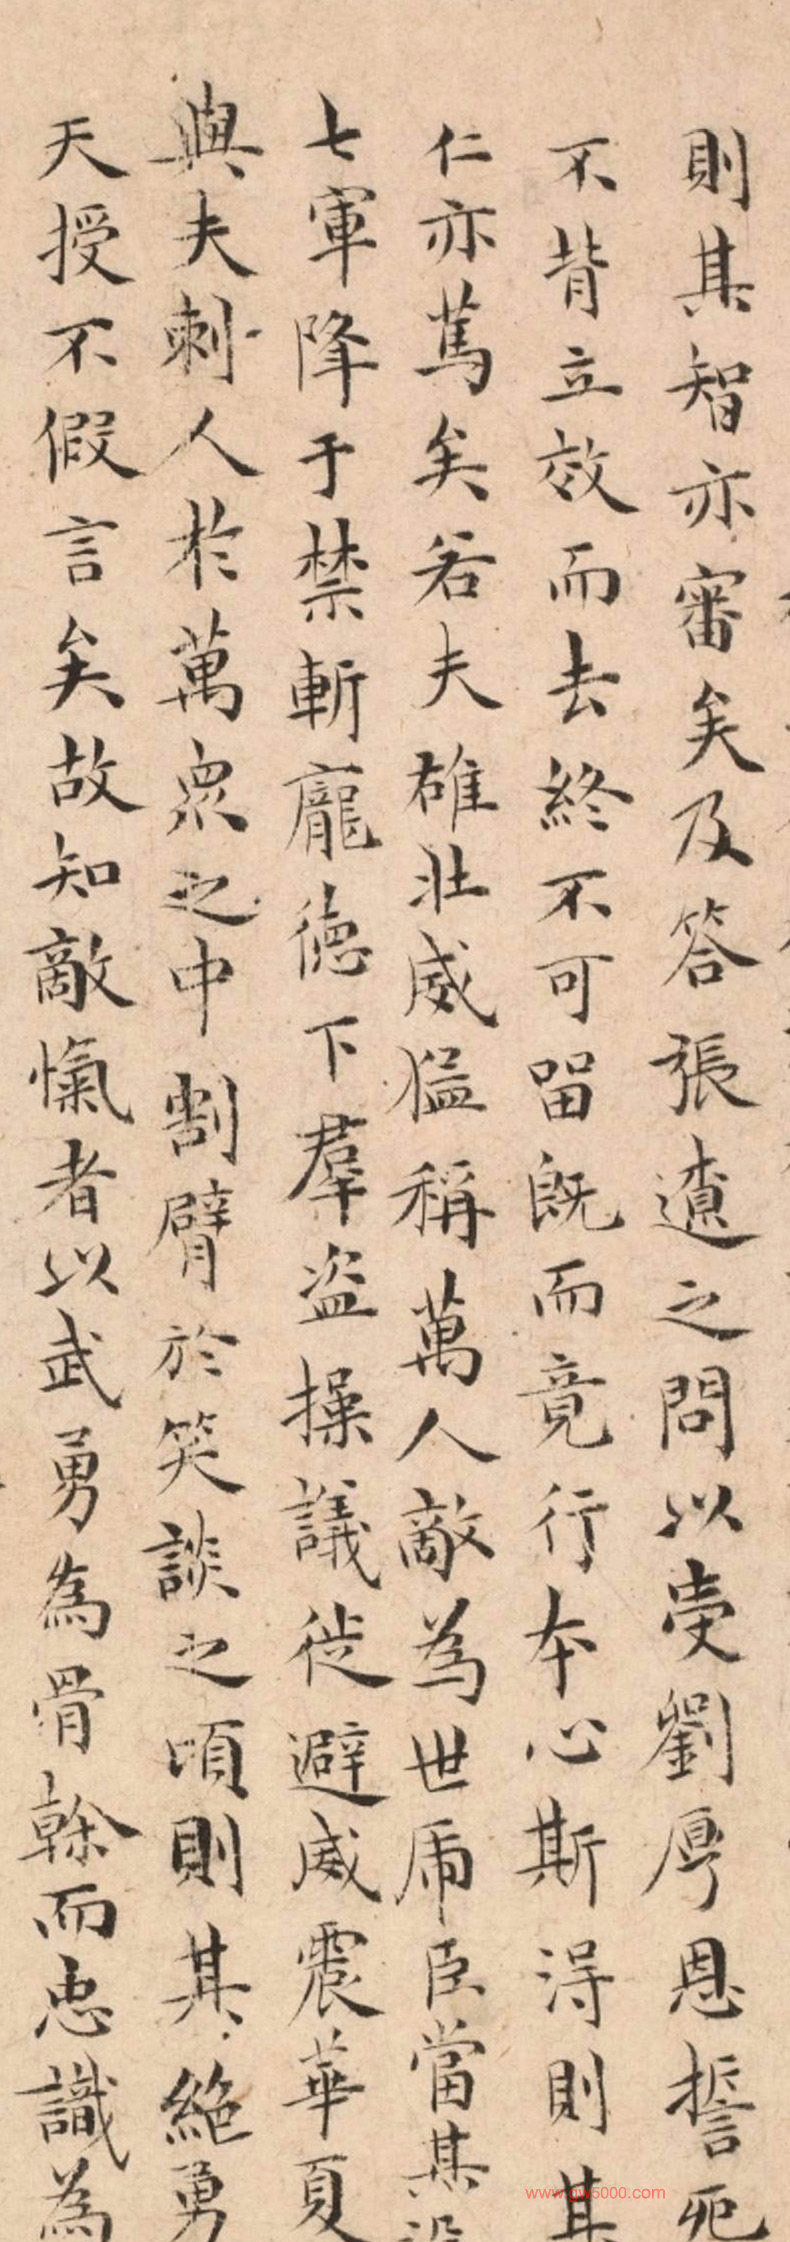 則其智亦審矣及答張遼之問以受劉厚恩誓死
不背立效而去終不可留既而竟行本心斯得則其
仁亦篤矣若夫雄壯威猛稱萬人敵為世虎臣當其沒
七軍降于禁斬龐德下羣盜操議徙避威震華夏
與夫刺人於萬眾之中割臂於笑談之頃則其絕勇
天授不假言矣故知敵愾者以武勇為骨榦而忠識為
www.gw5000.com